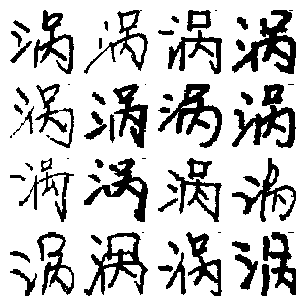 涡涡涡涡
涡涡涡涡
涡涡涡涡
涡涡涡涡